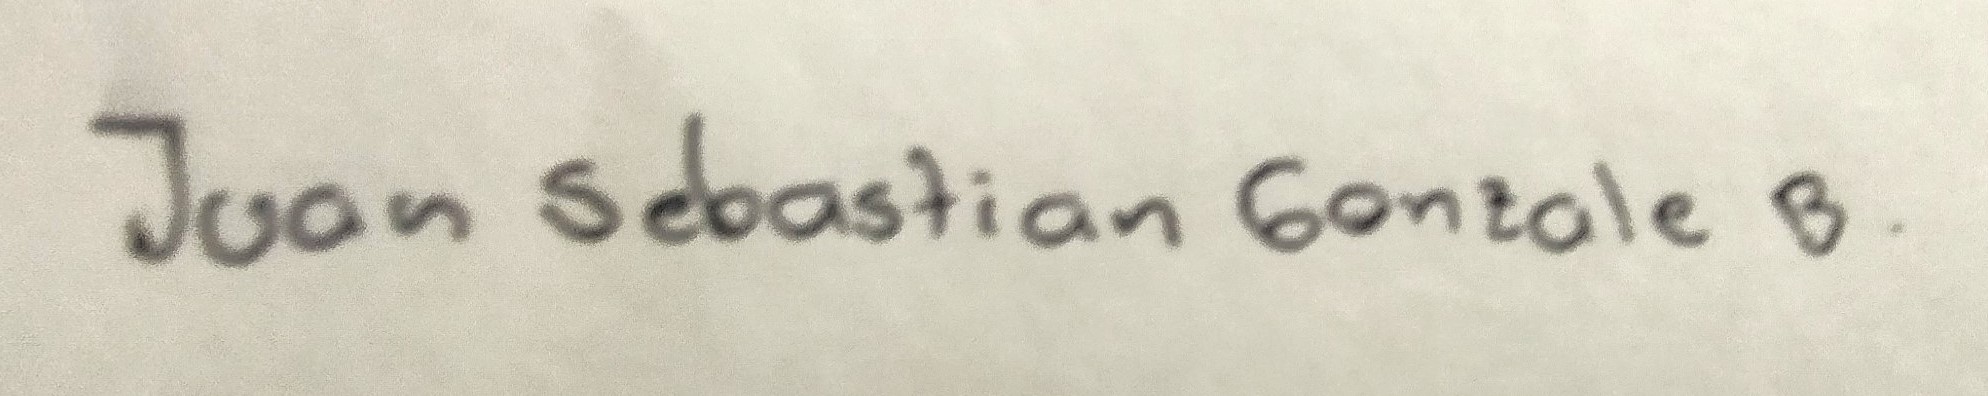 Juan Sebastian Gonzale B.